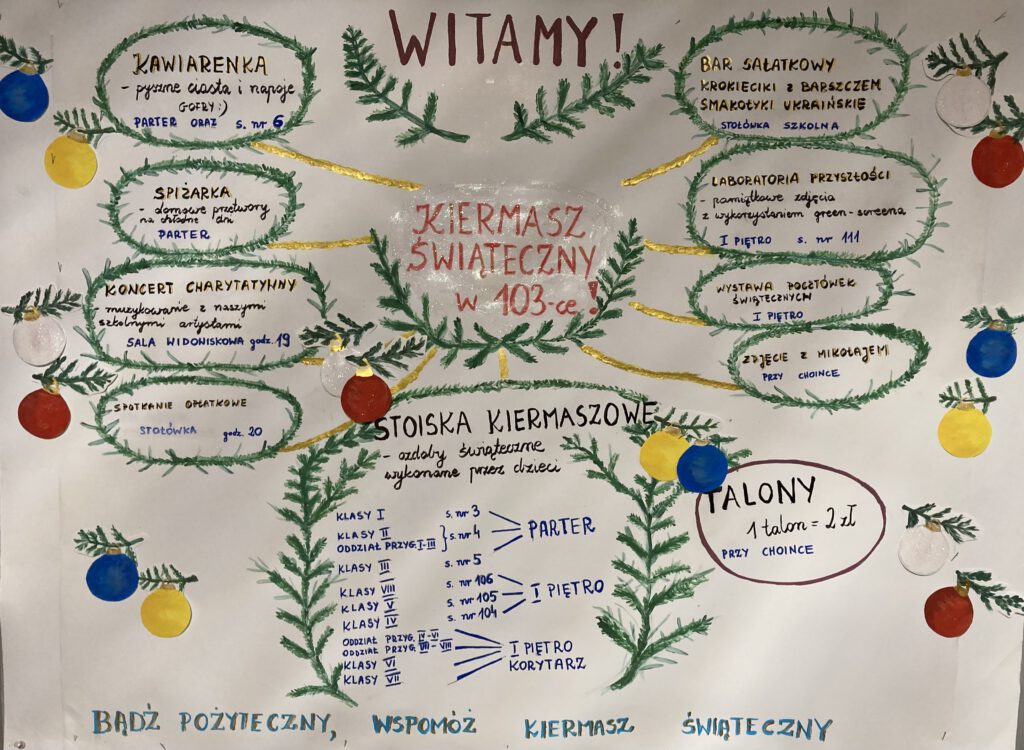 WITAMY!
KAWIARENKA
- pyszne ciasta i napoje
GOFRY :)
PARTER ORAZ s. nr 6
SPIŻARKA
- domowe przetwory
na chłodne dni
PARTER
KONCERT CHARYTATYWNY
- muzykowanie z naszymi
szkolnymi artystami
SALA WIDOWISKOWA godz. 19
SPOTKANIE OPŁATKOWE
STOŁÓWKA godz. 20
KIERMASZ
ŚWIĄTECZNY
w 103-ce!
BAR SAŁATKOWY
KROKIECIKI z BARSZCZEM
SMAKOŁYKI UKRAIŃSKIE
STOŁÓWKA SZKOLNA
LABORATORIA PRZYSZŁOŚCI
- pamiątkowe zdjęcia
z wykorzystaniem green-screena
I PIĘTRO s. nr 111
WYSTAWA POCZTÓWEK
ŚWIĄTECZNYCH
I PIĘTRO
ZDJĘCIE Z MIKOŁAJEM
PRZY CHOINCE
STOISKA KIERMASZOWE
- ozdoby świąteczne
wykonane przez dzieci
KLASY I s. nr 3
KLASY II
ODDZIAŁ PRZYG. I-III } s. nr 4
KLASY III s. nr 5
PARTER
KLASY VIII s. nr 106
KLASY V s. nr 105
KLASY IV s. nr 104
I PIĘTRO
ODDZIAŁ PRZYG. IV-VI
ODDZIAŁ PRZYG. VII-VIII
KLASY VI
KLASY VII
I PIĘTRO
KORYTARZ
TALONY
1 talon = 2 zł
PRZY CHOINCE
BĄDŹ POŻYTECZNY, WSPOMÓŻ KIERMASZ ŚWIĄTECZNY